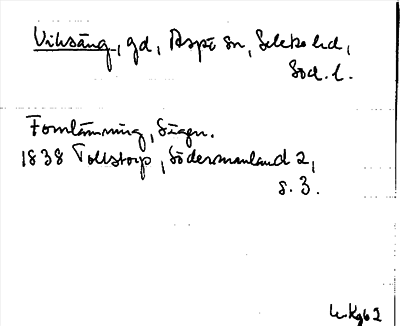 Viksäng, gd, Aspö sn, Selebo hd,
Söd. l.
Fornlämning, Sägn.
1838 Tollstorp, Södermanland 2,
s. 3.